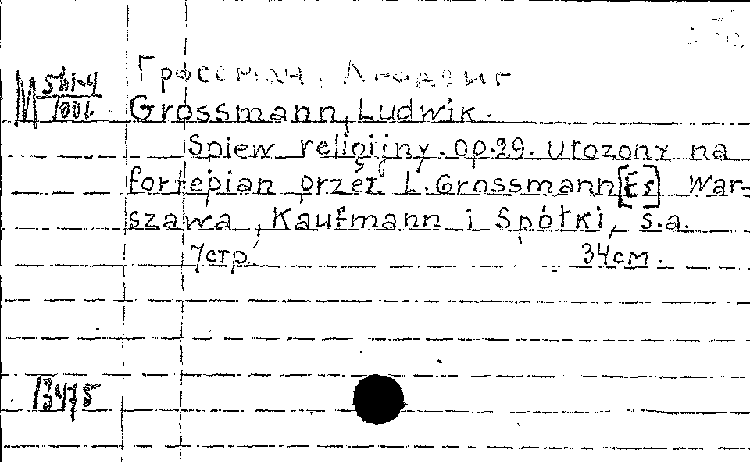 Гроссман, Людвиг
М 561-4/1001 Grossmann, Ludwik.
Spiew religijny. Op. 29. Utozony na
fortepian przez L. Grossmann [Es] War-
szawa, Kaufmann i Spółki, s.a.
7 стр. 34 см.
13475